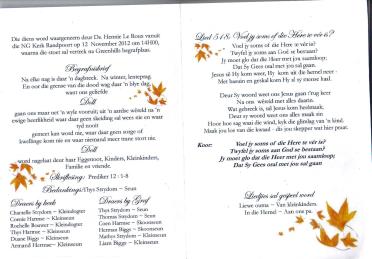 Die diens word waargeneem deur Ds. Hennie Le Roux vanuit
die NG Kerk Randpoort op 12 November 2012 om 14H00,
waarna die stoet sal vertrek na Greenhills begrafplaas.
Begrafnisbrief
Na elke nag is daar 'n dagbreek. Na winter, lentepag.
En oor die grense van die dood wag daar 'n blye dag.
want ons geliefde
Doll
gaan ons maar net 'n wyle vooruit; uit 'n aardse wêreld na 'n
ewige heerlikheid waar daar geen skeiding sal wees nie en waar
tyd nooit
gemeet kan word nie, waar daar geen sorge of
kwellinge kom nie en waar niemand meer trane stort nie.
Doll
word nagelaat deur haar Eggenoot, Kinders, Kleinkinders,
Familie en vriende.
Skriflesing: Prediker 12 : 1-8
Bedankings/Thys Strydom ~ Seun
Draers by kerk
Chantelle Strydom ~ Kleindogter
Corné Harmse ~ Kleinseun
Rochelle Bonner ~ Kleindogter
Thys Harmse ~ Kleinseun
Duane Biggs ~ Kleinseun
Armand Hermse ~ Kleinseun
Draers by Graf
Thys Strydom ~ Seun
Thomas Strydom ~ Seun
Coen Harmse ~ Skoonseun
Thomas Harmse ~ Skoonseun
Mathys Strydom ~ Kleinseun
Liam Biggs ~ Kleinseun
Lied 518: Voel jy soms of die Here te vér is?
Voel jy soms of die Here te vér is?
Twyfel jy soms aan God se bestaan?
Jy moet glo dat die Heer met jou saamloop;
Dat Sy Gees oral met jou sal gaan.
Jesus sê Hy kom weer, Hy kom uit die hemel neer
Mens het basuin en engele stem na die aarde keer.
Deur Sy woord weet ons Jesus gaan t'rug keer
Na ons wêreld met alles daarin.
Wat gebreek is, sal Jesus kom heelmaak.
Deur sy woord weet ons alles maak sin
Hoor vanaand hoe sag waai die wind, kyk die glinkig van 'n kind.
Maak jou los van die kwaad - dis jou skepper wat hier praat.
Koor: Voel jy soms of die Here te vér is?
Twyfel jy soms aan God se bestaan?
Jy moet glo dat die Heer met jou saamloop;
Dat Sy Gees oral met jou sal gaan
Liedjies sal gespeel word
Liewe ouma ~ Van kleinkinders.
In die Hemel ~ Aan ons pa.